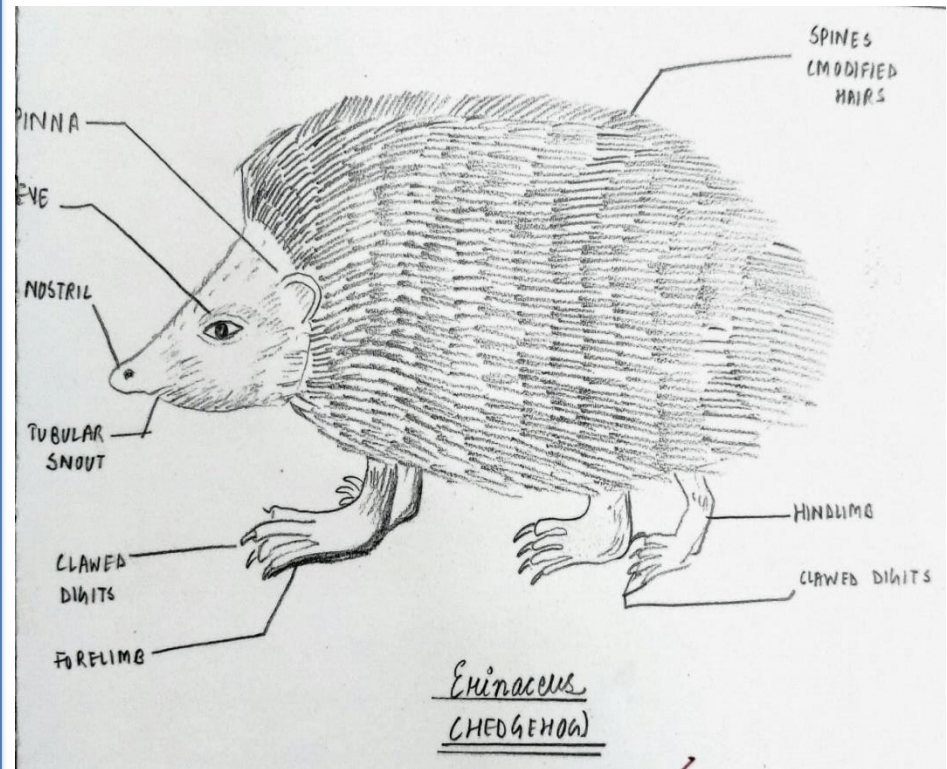 SPINES
(MODIFIED
HAIRS
PINNA
EYE
NOSTRIL
TUBULAR
SNOUT
CLAWED
DIGITS
FORELIMB
HINDLIMB
CLAWED DIGITS
Erinaceus
(HEDGEHOG)